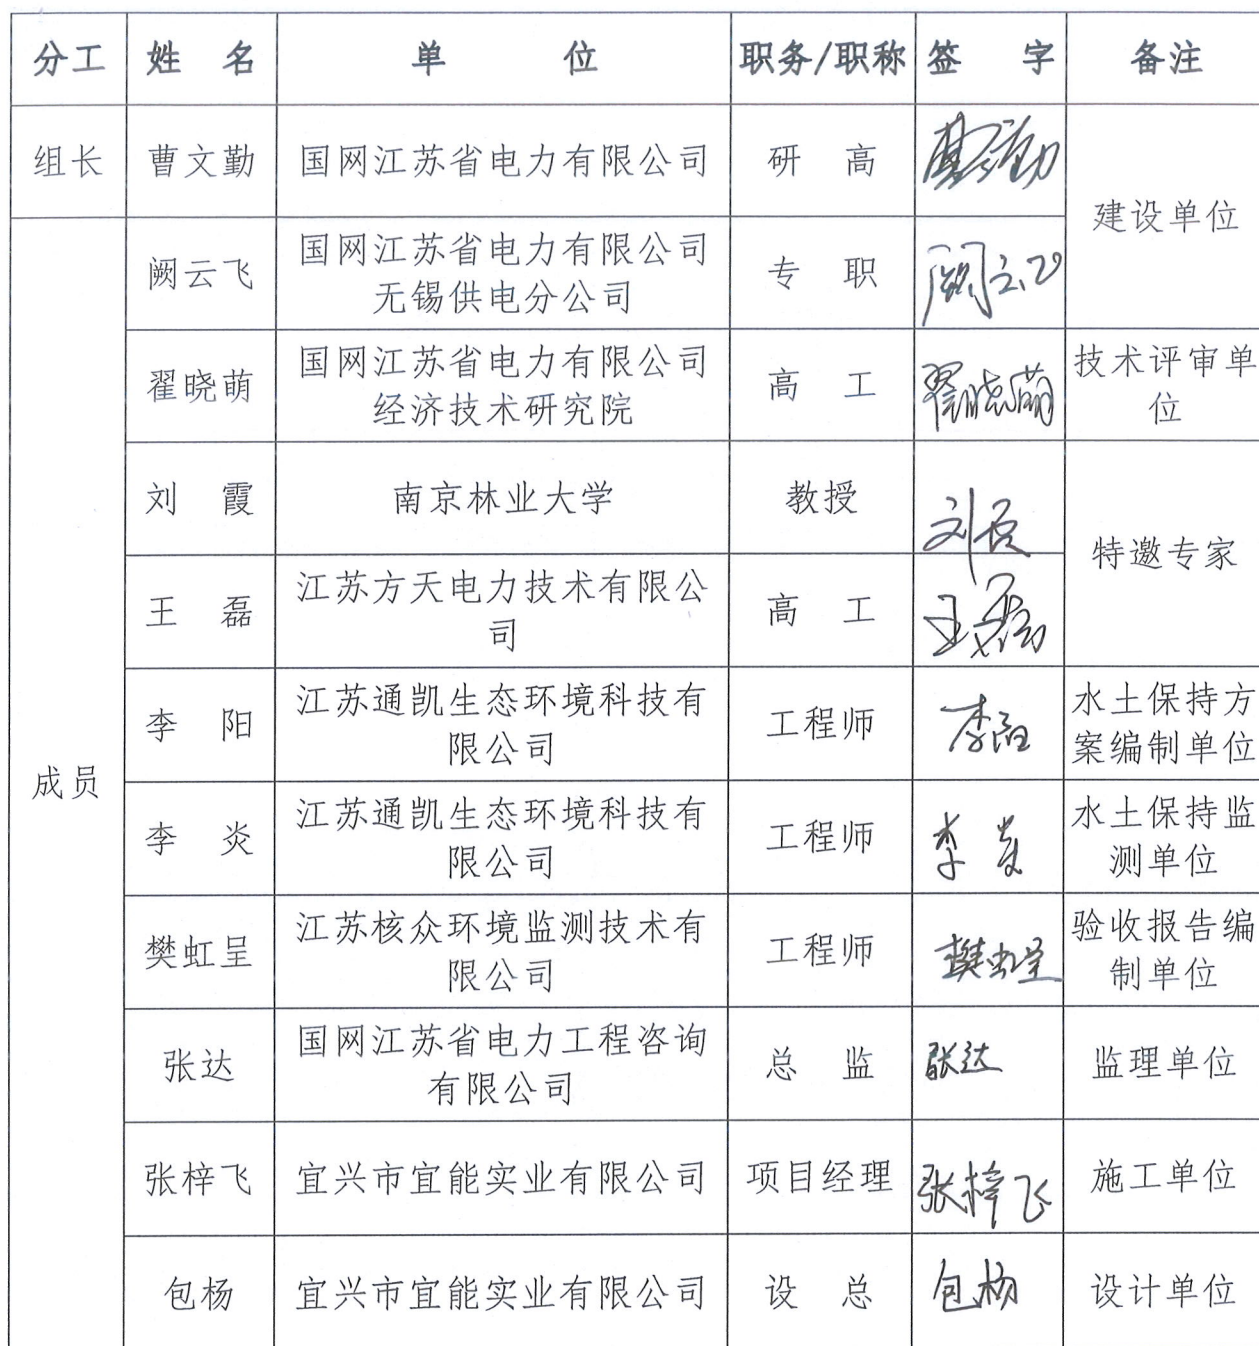 分工 姓 名 单 位 职务/职称 签 字 备注
组长 曹文勤 国网江苏省电力有限公司 研 高 曹文勤 建设单位
成员
阙云飞 国网江苏省电力有限公司
无锡供电分公司 专 职 阙云飞
翟晓萌 国网江苏省电力有限公司
经济技术研究院 高 工 翟晓萌 技术评审单
位
刘 霞 南京林业大学 教授 刘霞 特邀专家
王 磊 江苏方天电力技术有限公
司 高 工 王磊
李 阳 江苏通凯生态环境科技有
限公司 工程师 李阳 水土保持方
案编制单位
李 炎 江苏通凯生态环境科技有
限公司 工程师 李炎 水土保持监
测单位
樊虹呈 江苏核众环境监测技术有
限公司 工程师 樊虹呈 验收报告编
制单位
张达 国网江苏省电力工程咨询
有限公司 总 监 张达 监理单位
张梓飞 宜兴市宜能实业有限公司 项目经理 张梓飞 施工单位
包杨 宜兴市宜能实业有限公司 设 总 包杨 设计单位